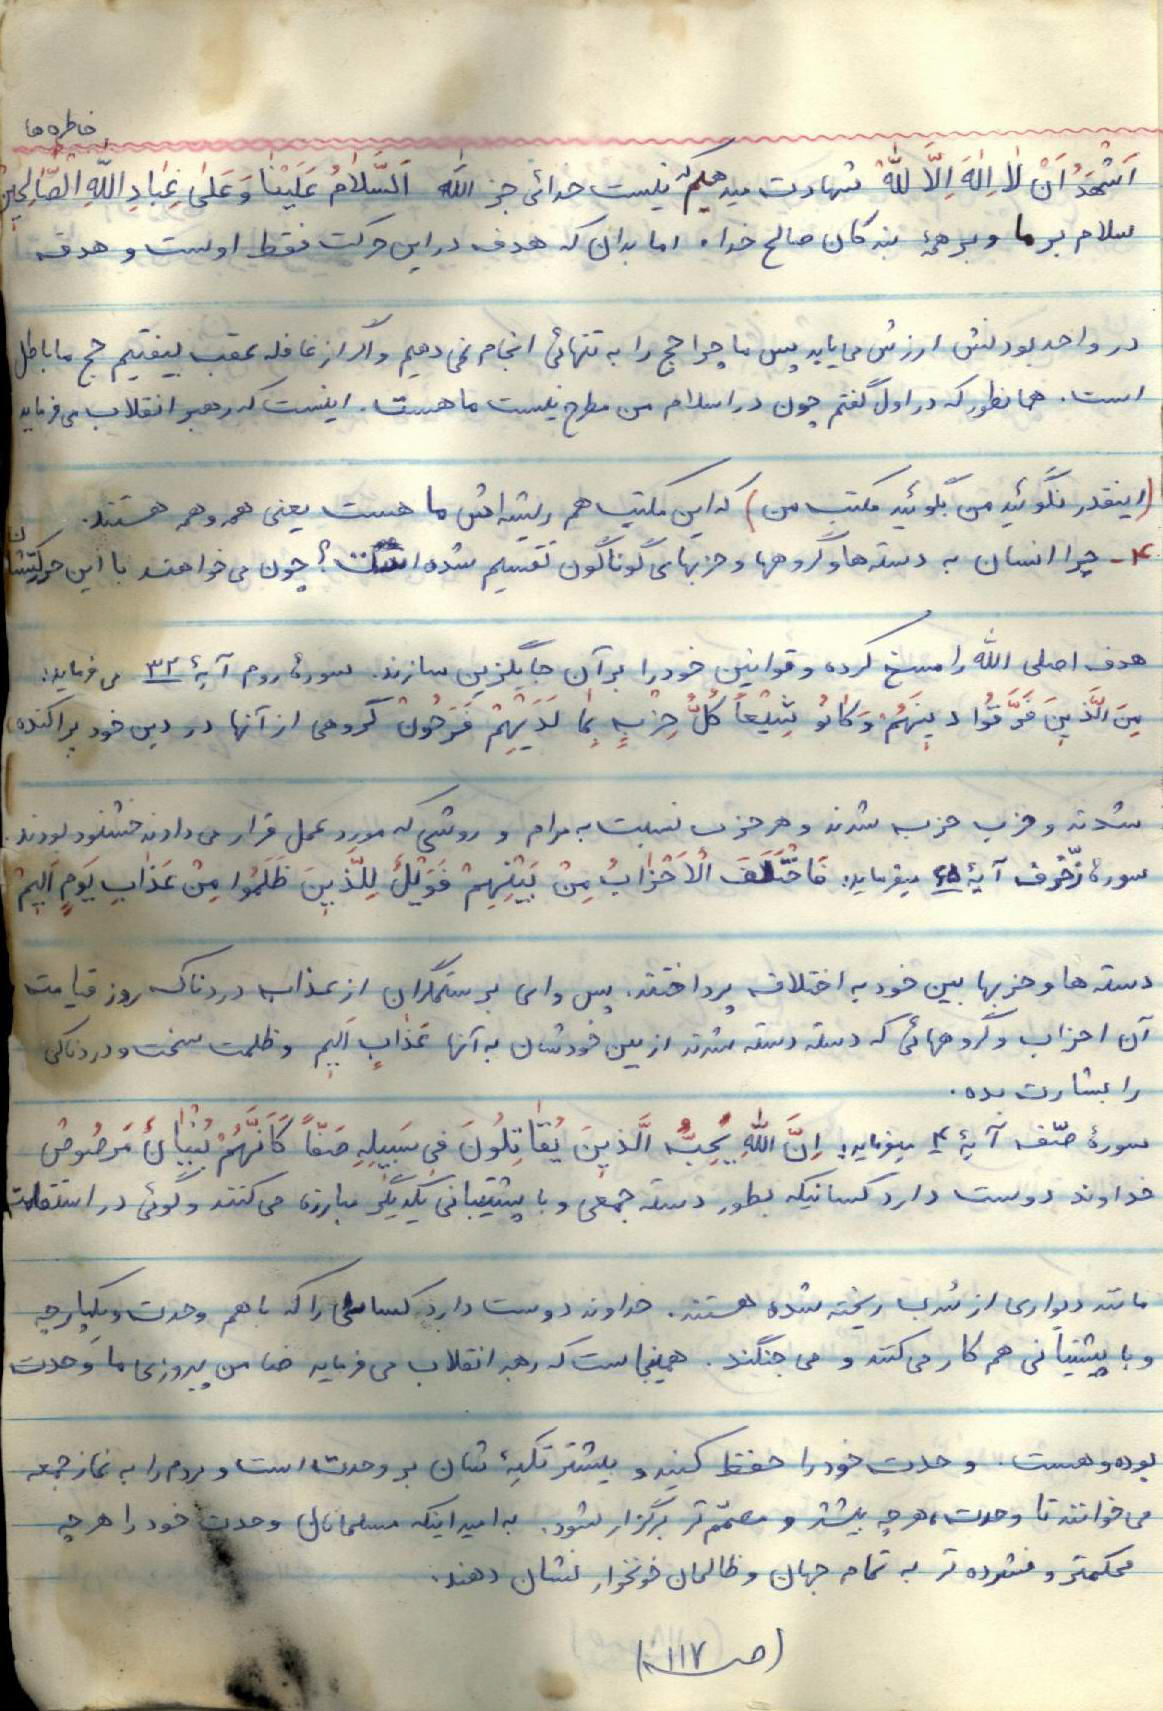 خاطره ها
اَشْهَدُ اَنْ لٰا اِلٰهَ اِلَّا لله شهادت میدهیم که نیست خدائی جز الله اَلسَّلٰامُ عَلَیْنٰا وَ عَلیٰ عِبٰادِ اللهِ الصّٰالِحینَ
سلام بر ما و بر همهٔ بندکان صالح خدا، اما بدان که هدف در این حرکت فقط اوست و هدف
در واحد بودنش ارزش می یابد پس ما چرا حج را به تنهائی انجام نمی دهیم و اگر از غافله عقب بیفتیم حج ما باطل
است. همانطور که در اول گفتم چون در اسلام من مطرح نیست ما هست. اینست که رهبر انقلاب می فرماید
(اینقدر نگوئید من بگوئید مکتب من) که این مکتب هم ریشه اش ما هست یعنی همه و همه هستند.
۴- چرا انسان به دسته ها و گروهها و حزبهای گوناگون تقسیم شده است؟ چون می خواهند با این حرکتشان
هدف اصلی الله را مسخ کرده و قوانین خود را بر آن جایگزین سازند. سورهٔ روم آیهٔ ۳۲ می فرماید:
مِنَ الَّذینَ فَرَّقُوا دینَهُمْ وَ کٰانُو شِیَعاً کُلُّ حِزْبٍ بِمٰا لَدَیْهِمْ فَرَحُونْ گروهی از آنها در دین خود پراکنده
شدند و حزب حزب شدند و هر حزب نسبت به مرام و روشی که مورد عمل قرار می دادند خشنود بودند.
سورهٔ زُخْرُف آیهٔ ۶۵ میفرماید: فَاخْتَلَفَ الْاَحْزٰابُ مِنْ بَیْنِهِمْ فَوَیْلٌ لِلَّذینَ ظَلَمُوا مِنْ عَذٰابِ یَومٍ اَلیمْ
دسته ها و حزبها بین خود به اختلاف پرداختند. پس وای بر ستمگران از عذاب دردناک روز قیامت
آن احزاب و گروههائی که دسته دسته شدند از بین خودشان به آنها عَذٰابٍ اَلیمٍ و ظلمت سخت و دردناکی
را بشارت بده.
سورهٔ صّف آیهٔ ۴ میفرماید: اِنَّ اللهَ یُحِبُّ الَّذینَ یُقٰاتِلُونَ فی سَبیلِهِ صَفّاً کَاَنَّهُمْ بُنْیٰانٌ مَرصُوصْ
خداوند دوست دارد کسانیکه بطور دسته جمعی و با پشتیبانی یکدیگر مبارزه می کنند و گوئی در استقامت
مانند دیواری از سُرب ریخته شده هستند. خداوند دوست دارد کسانی را که با هم وحدت و یکپارچه
و با پشتیبانی هم کار می کنند و می جنگند. همینجاست که رهبر انقلاب می فرماید ضامن پیروزی ما وحدت
بوده و هست. وحدت خود را حفظ کنید و بیشتر تکیهٔ شان بر وحدت است و مردم را به نماز جمعه
می خوانند تا وحدت، هر چه بیشتر و مصمّم تر برگزار شود. به امید اینکه مسلمانان وحدت خود را هر چه
محکمتر و فشرده تر به تمام جهان و ظالمان خونخوار نشان دهند.
(صـ ۱۱۷)